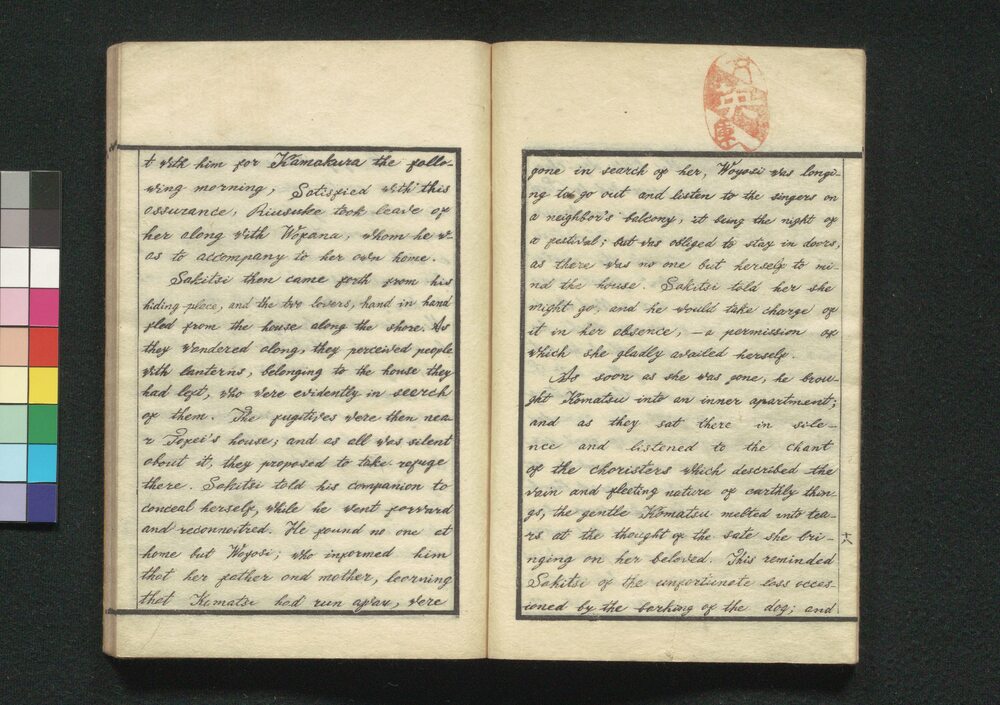 t with him for Kamakura the follo-
wing morning; Satisfied with this
assurance, Riusuke took leave of
her along with Wofana, whom he w-
as to accompany to her own home.
Sakitsi then came forth from his
hiding-place, and the two lovers, hand in hand
fled from the house along the shore. As
they wandered along, they perceived people
with lanterns, belonging to the house they
had left, who were evidently in search
of them. The fugitives were then nea-
r Tofei's house; and as all was silent
about it, they proposed to take refuge
there. Sakitsi told his companion to
conceal herself, while he went forward
and reconnoitred. He found no one at
home but Woyosi; who informed him
that her father and mother, learning
that Komatsu had run away, were
gone in search of her, Woyosi was longi-
ng to go out and listen to the singers on
a neighbor's balcony, it being the night of
a festival; but was obliged to stay in doors,
as there was no one but herself to mi-
nd the house. Sakitsi told her she
might go, and he would take charge of
it in her absence, – a permission of
which she gladly availed herself.
As soon as she was gone, he brou-
ght Komatsu into an inner apartment;
and as they sat there in sile-
nce and listened to the chant
of the choristers which described the
vain and fleeting nature of earthly thin-
gs, the gentle Komatsu melted into tea-
rs at the thought of the sate she bri-
nging on her beloved. This reminded
Sakitsi of the unfortunate loss occas-
ioned by the barking of the dog; and
十六
英
庫